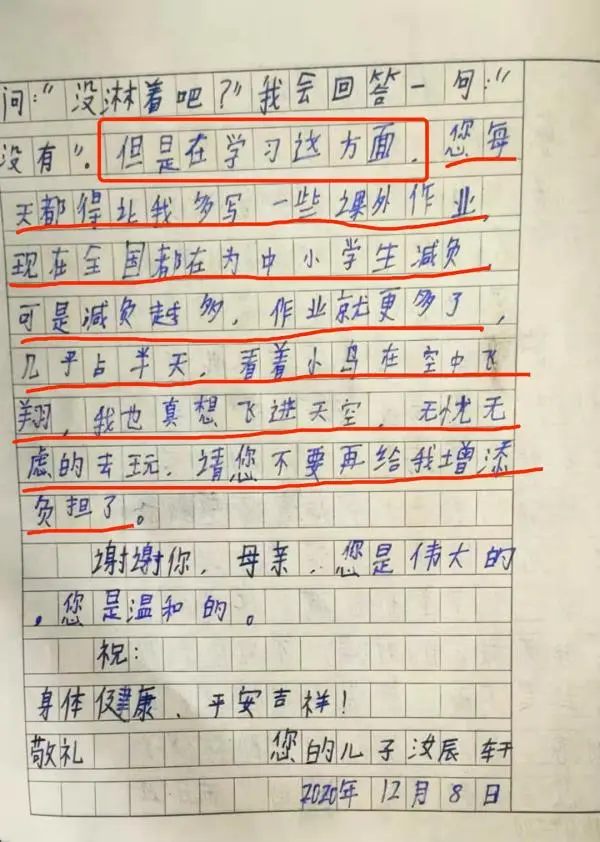 问:"没淋着吧?"我会回答一句:"
没有"。但是在学习这方面,您每
天都得让我多写一些课外作业,
现在全国都在为中小学生减负,
可是减负越多,作业就更多了,
几乎占半天,看着小鸟在空中飞
翔,我也真想飞进天空,无忧无
虑的去玩,请您不要再给我增添
负担了。
谢谢你,母亲,您是伟大的
,您是温和的。
祝:
身体健康、平安吉祥!
敬礼 您的儿子汝辰轩
2020年12月8日